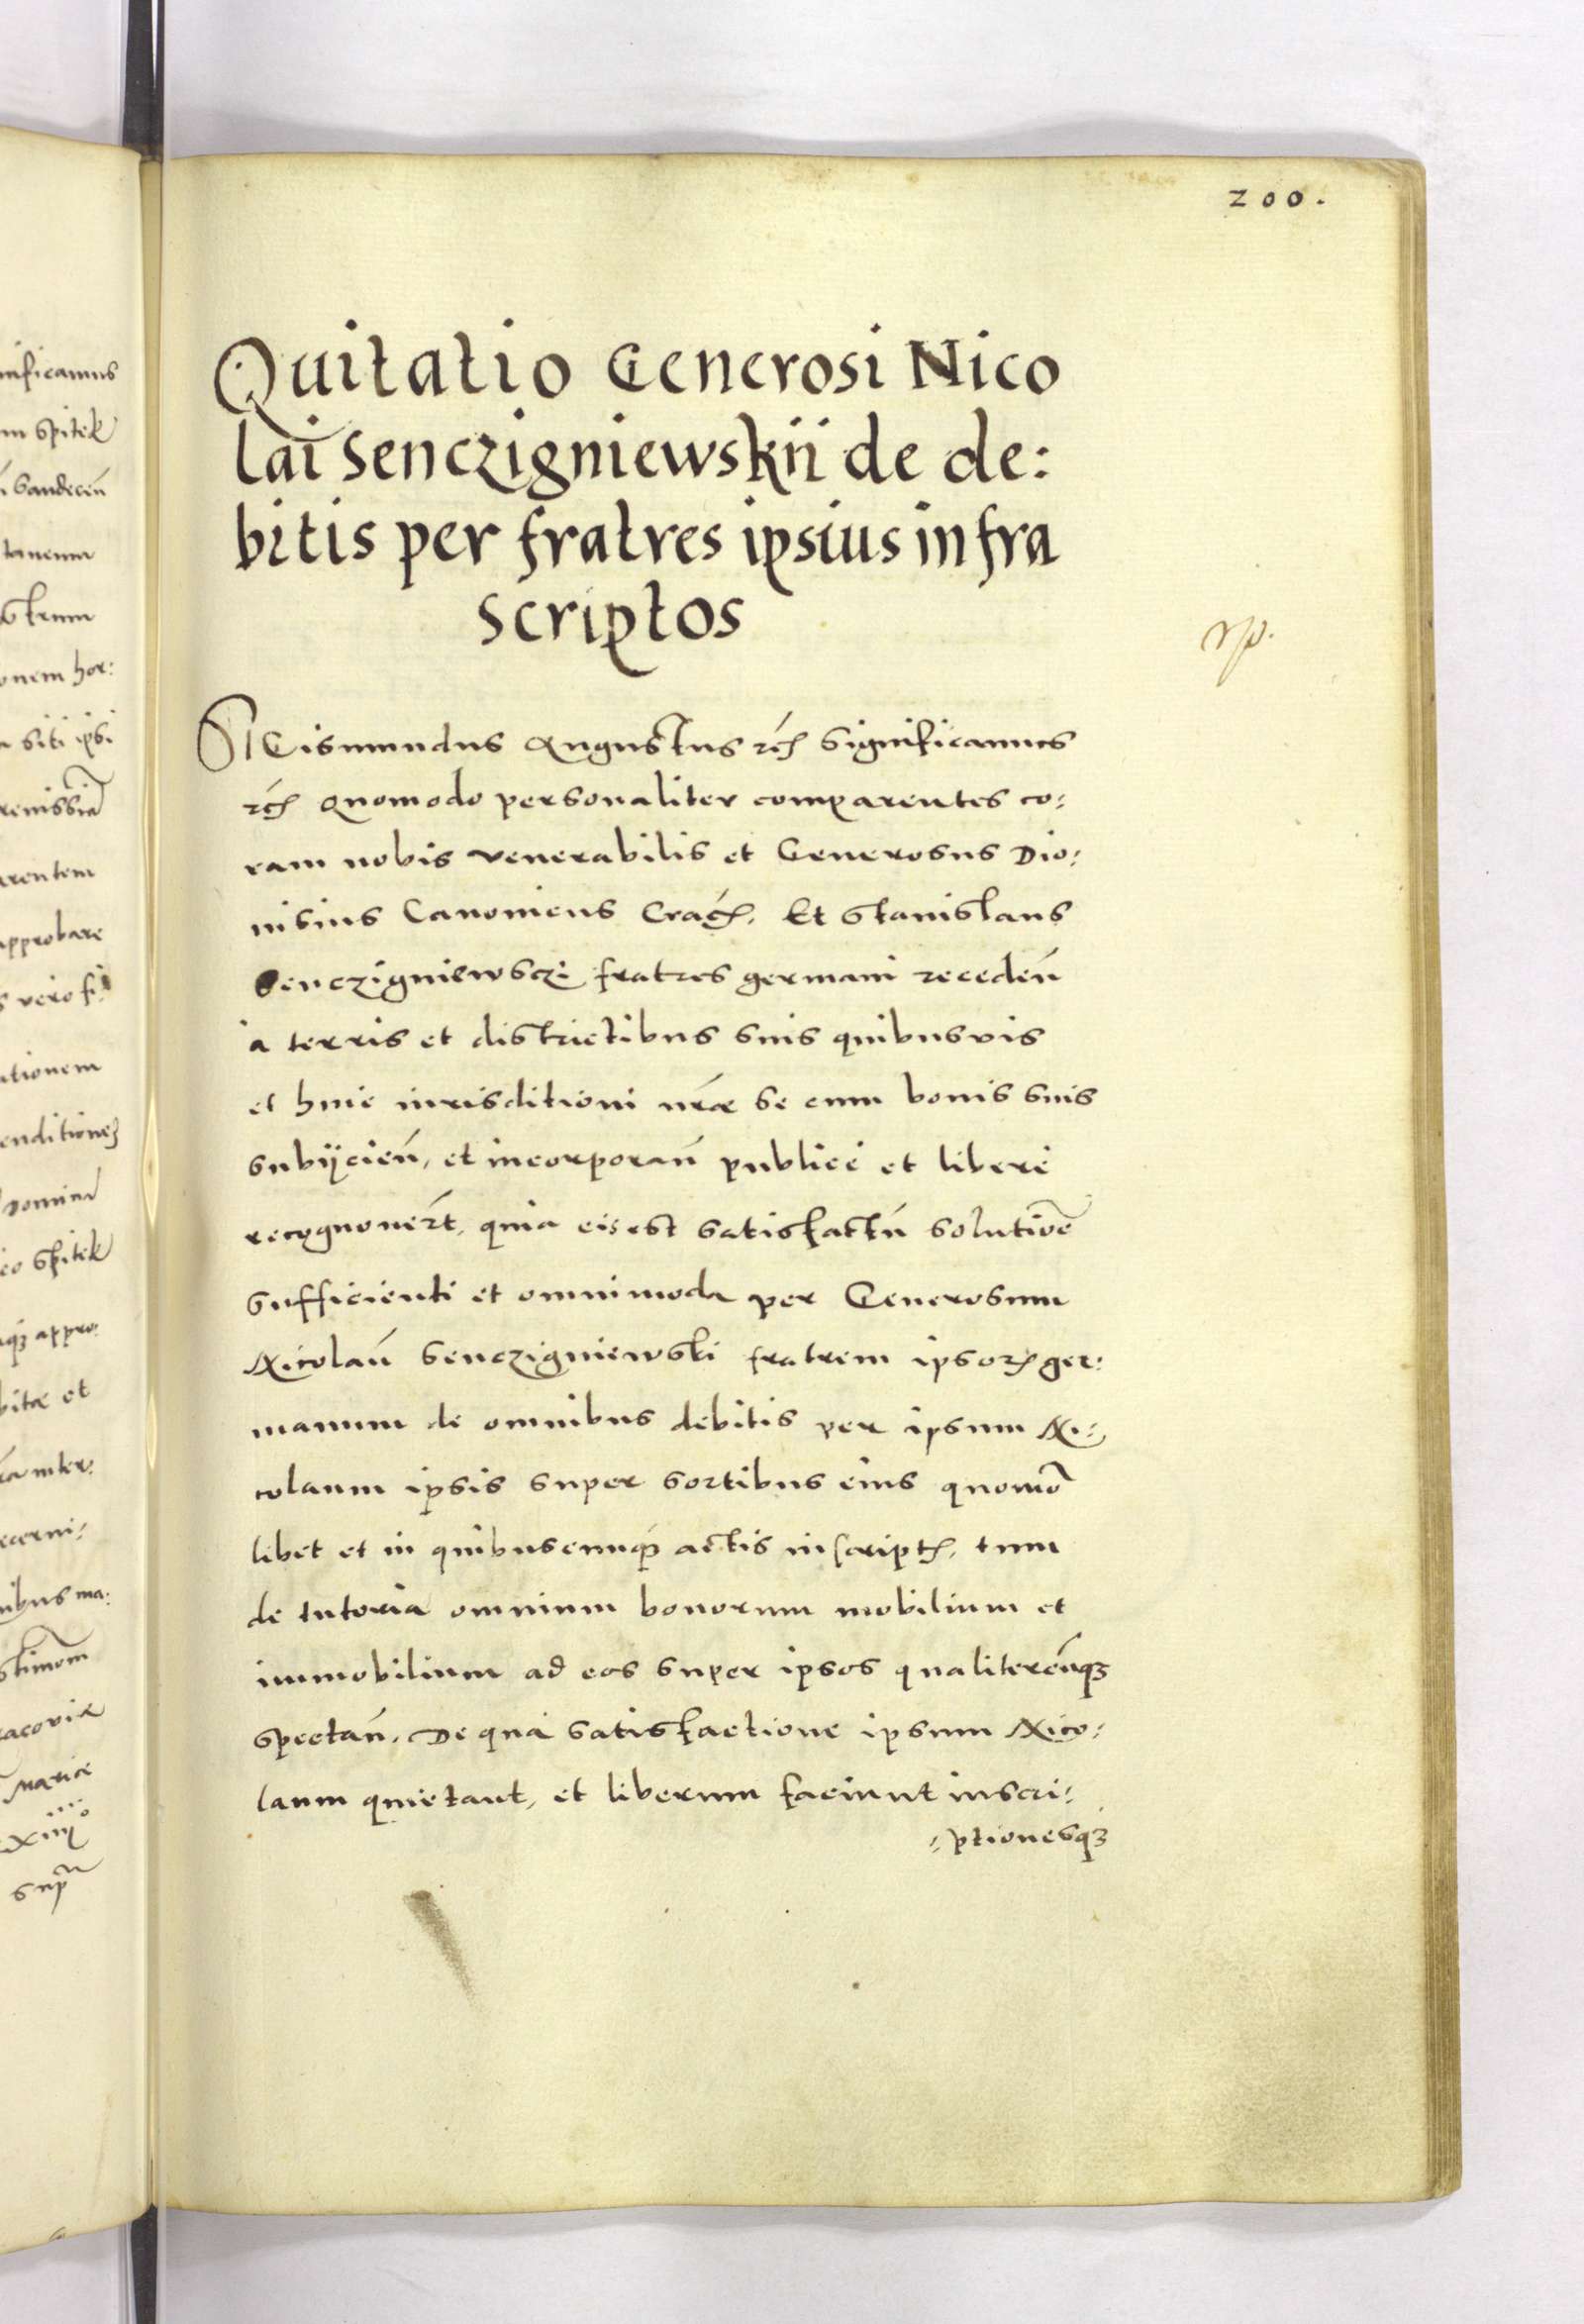 200.
Quitatio Generosi Nico
lai Senczigniewskii de de:
bitis per fratres ipsius infra
scriptos
SIGismundus Augustus rc̃ Significamus
rc̃ Quomodo personaliter comparentes co:
ram nobis venerabilis et Generosus Dio:
nisius Canonicus Crac̃. Et Stanislaus
Senczigniewsczi fratres germani receden̄
a terris et districtibus suis quibusvis
et huic iurisditioni nr̃ae se cum bonis suis
subijcien̄, et incorporan̄ publice et libere
recognouer̃t, quia eis est satisfactū solutiōe
sufficienti et omnimoda per Generosum
Nicolaū Senczigniewski fratrem ipsoꝝ ger:
manum de omnibus debitis per ipsum Ni:
colaum ipsis super sortibus eius quomō
libet et in quibuscunqꝫ actis inscript̃, tum
de tutoria omnium bonorum mobilium et
immobilium ad eos super ipsos qualitercūqꝫ
spectan̄. De qua satisfactione ipsum Nico:
laum quietant, et liberum faciunt inscri:
:ptionesqꝫ
nificamus
m Spitek
Sandecen̄
taneum
onem hor:
siti ipsi
renissim̃
arentem
approbare
s vero fi
tionem
enditioneʒ
eo Spitek
qꝫ appro:
bitae et
ra inter:
ecerni:
ibus ma:
acovia
Mariae
xiiij
supr̃